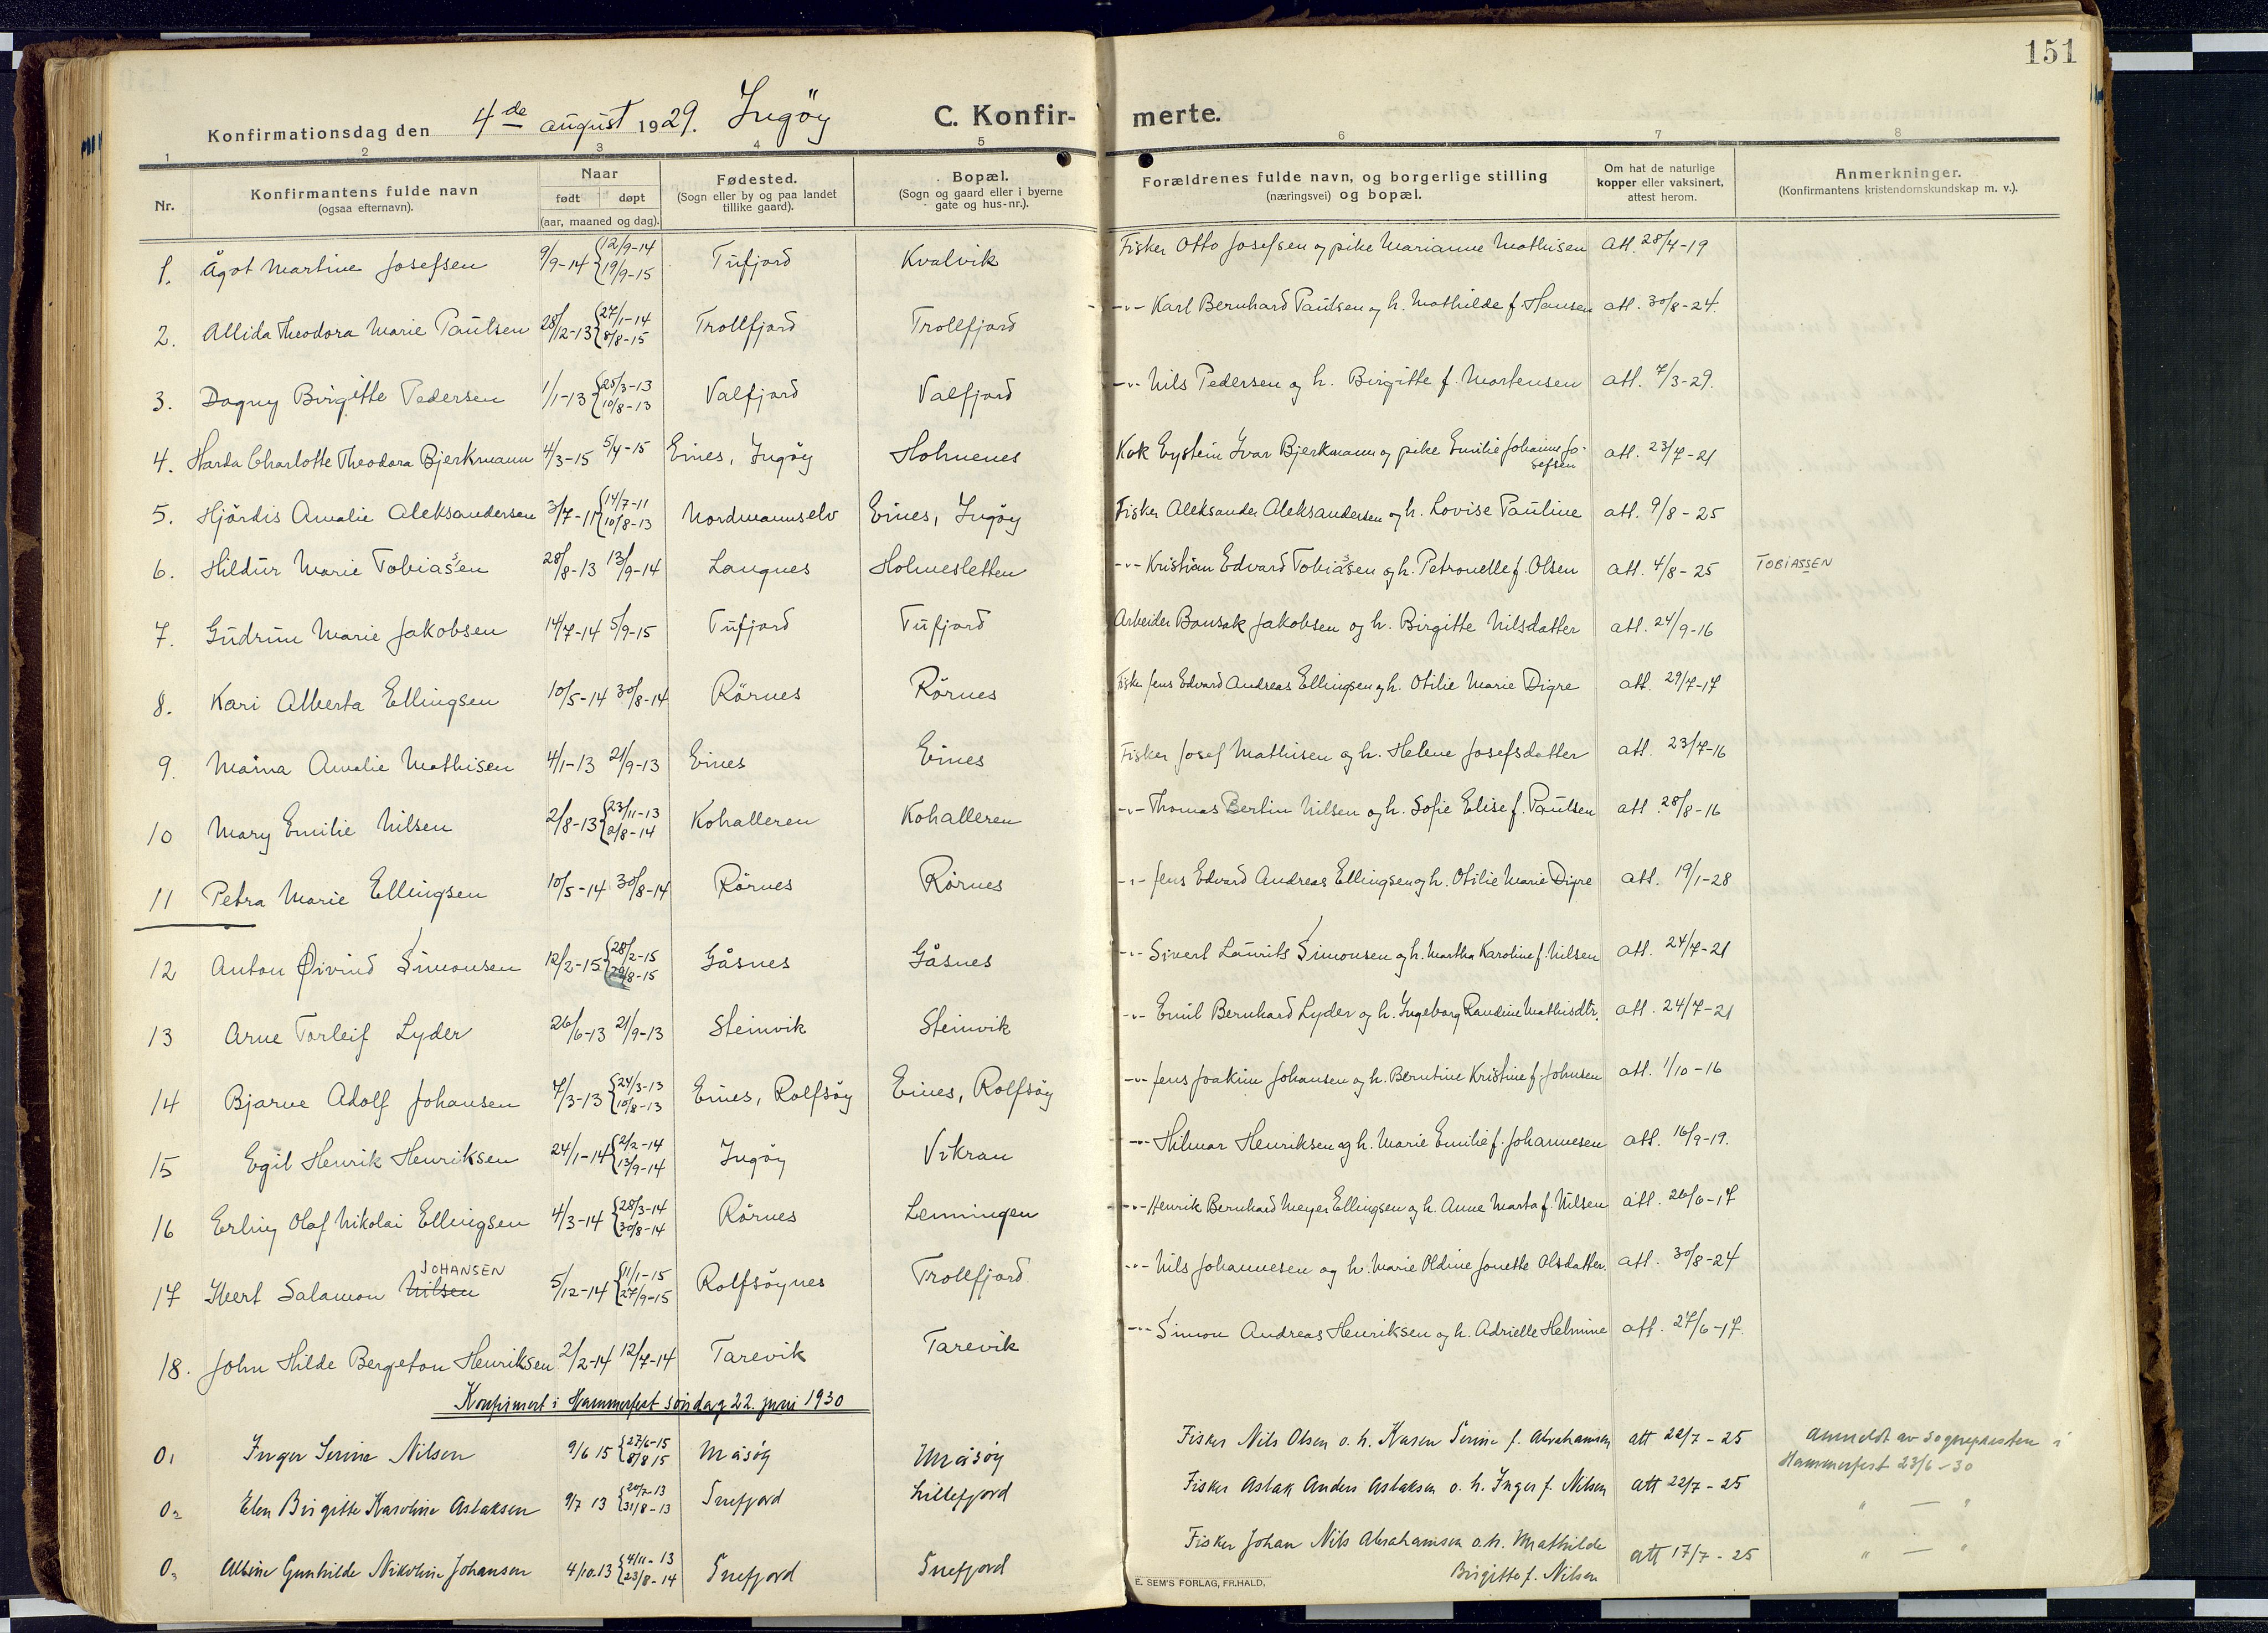 151
Konfirmationsdag den 4de august 1929. Ingöy C. Konfirmerte.
1 2 3 4 5 6 7 8
Nr. Konfirmantens fulde navn (ogsaa efternavn). Naar født døpt (aar, maaned og dag). Fødested. (Sogn eller by og paa landet tillike gaard). Bopæl. (Sogn og gaard eller i byerne gate og hus-nr.). Forældrenes fulde navn, og borgerlige stilling (næringsvei) og bopæl. Om hat de naturlige kopper eller vaksinert, attest herom. Anmerkninger. (Konfirmantens kristendomskundskap m. v.).
1. Ågot Martine Josefsen 9/9-14 {12/9-14 19/9-15 Tufjord Kvalvik Fisker Otto Josefsen og pike Marianne Mathisen att. 28/4-19
2. Allida Theodora Marie Paulsen 28/12-13 {27/1-14 8/8-15 Trollfjord Trollfjord -"- Karl Bernhard Paulsen og h. Mathilde f. Hansen att. 30/8-24.
3. Dagny Birgitte Pedersen 1/1-13 {25/3-13 10/8-13 Valfjord Valfjord -"- Nils Pedersen og h. Birgitte f. Mortensen att. 7/3-29.
4. Harda Charlotte Theodora Bjerkmann 4/3-15 5/4-15 Eines, Ingöy Holmenes Kok Eystein Ivar Bjerkmann og pike Emilie Johanne Josefsen att. 23/7-21
5. Hjördis Amalie Aleksandersen 3/7-11 {14/7-11 10/8-13 Nordmannselv Eines, Ingöy Fisker Aleksander Aleksandersen og h. Lovise Pauline att. 9/8-25
6. Hildur Marie Tobiassen 28/8-13 13/9-14 Langnes Holmesletten -"- Kristian Edvard Tobiassen og h. Petronelle f. Olsen att. 4/8-25 TOBIASSEN
7. Gudrun Marie Jakobsen 14/7-14 5/9-15 Tufjord Tufjord Arbeider Bansak Jakobsen og h. Birgitte Nilsdatter att. 24/9-16
8. Kari Alberta Ellingsen 10/5-14 30/8-14 Rörnes Rörnes Fisker Jens Edvard Andreas Ellingsen og h. Otilie Marie Digre att. 29/7-17
9. Maina Amalie Mathisen 4/1-13 21/9-13 Eines Eines Fisker Josef Mathisen og h. Helene Josefsdatter att. 23/7-16
10 Mary Emilie Nilsen 2/8-13 {23/11-13 2/8-14 Kohalleren Kohalleren -"- Thomas Berlin Nilsen og h. Sofie Elise f. Paulsen att. 28/8-16
11 Petra Marie Ellingsen 10/5-14 30/8-14 Rörnes Rörnes -"- Jens Edvard Andreas Ellingsen og h. Otilie Marie Digre att. 19/1-28
12 Anton Øivind Simonsen 12/2-15 {28/2-15 /8-15 Gåsnes Gåsnes -"- Sivert Laurits Simonsen og h. Martha Karoline f. Nilsen att. 24/7-21
13 Arne Torleif Lyder 26/6-13 21/9-13 Steinvik Steinvik -"- Emil Bernhard Lyder og h. Ingeborg Raudine Mathisdtr. att. 24/7-21
14 Bjarne Adolf Johansen 7/3-13 {24/3-13 10/8-13 Eines, Rolfsöy Eines, Rolfsöy -"- Jens Joakim Johansen og h. Berntine Kristine f. Johnsen att. 1/10-16
15 Egil Henrik Henriksen 24/1-14 {2/2-14 13/9-14 Ingöy Vikran -"- Hilmar Henriksen og h. Marie Emilie f. Johannesen att. 16/9-19.
16 Erling Olaf Nikolai Ellingsen 4/3-14 {28/3-14 30/8-14 Rörnes Lemmingen -"- Henrik Bernhard Meyer Ellingsen og h. Anne Marta f. Nilsen att. 26/6-17
17 Ivert Salamon Nilsen JOHANSEN 5/12-14 {11/1-15 27/9-15 Rolfsöynes Trollfjord -"- Nils Johannesen og h. Marie Oldine Jonette Olsdatter. att. 30/8-24
18. John Hilde Bergeton Henriksen 2/2-14 12/7-14 Tarevik Tarevik -"- Simon Andreas Henriksen og h. Adrielle Helmine att. 27/6-17.
Konfirmert i Hammerfest söndag 22. juni 1930
01 Inger Serine Nilsen 9/6 15 {27/6-15 8/8 15 Måsöy Måsöy Fisker Nils Olsen o. h. Karen Serine f. Abrahamsen att 22/7-25 Anmeldt av sogneprесten i Hammerfest 23/6-30
02 Elen Birgitte Karoline Aslaksen 9/7 13 {20/7-13 31/8-13 Snefjord Lillefjord Fisker Aslak Anders Aslaksen o. h. Inger f. Nilsen att 22/7-25 " — "
03 Albine Gunhilde Nikoline Johansen 4/10.13 {4/11-13 23/8-14 Snefjord Snefjord Fisker Johan Nils Abrahamsen o.h. Mathilde Birgitte f. Nilsen att 17/7-25 " — "
E. SEM'S FORLAG, FR.HALD.